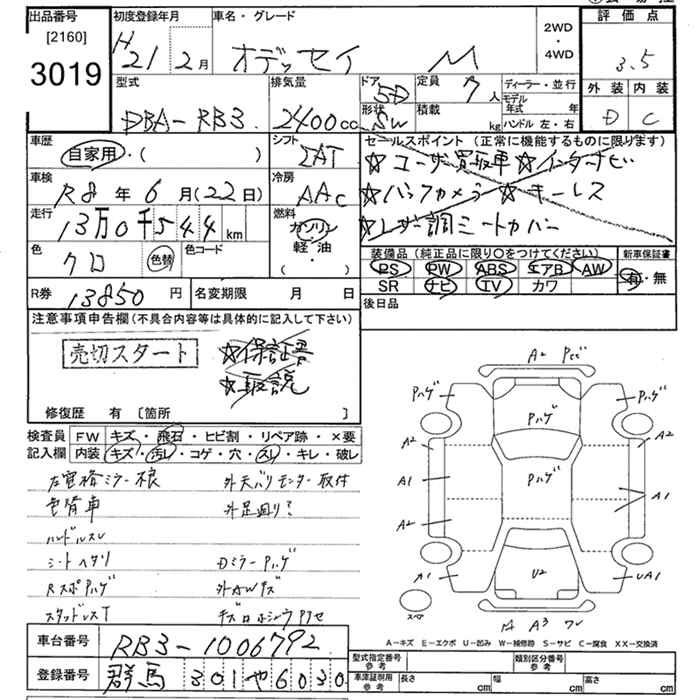 出品番号
[2160]
3019
初度登録年月
H21年2月
車名・グレード
オデッセイ M
2WD
・
4WD
評価点
3.5
外装 内装
D C
型式
DBA-RB3
排気量
2400cc
ドア 5D
形状 SW
定員 7人
積載 kg
ディーラー・並行
モデル年式 年
ハンドル 左・右
車歴
自家用・( )
シフト
IAT
セールスポイント(正常に機能するものに限ります)
☆ユーザー買取車☆インターナビ
☆バックカメラ☆キーレス
☆レザー調シートカバー
車検
R8年6月(22日)
冷房
AAC
走行
13万0千544km
燃料
ガソリン
軽・油
( )
色
クロ
色替
色コード
装備品(純正品に限り○をつけてください)
新車保証書
PS PW ABS エアB AW
SR ナビ TV カワ
有・無
R券 13850円
名変期限 月 日
後日品
注意事項申告欄(不具合内容等は具体的に記入して下さい)
売切スタート
☆保証書
☆取説
修復歴 有 [箇所 ]
検査員記入欄
FW キズ・飛石・ヒビ割・リペア跡・×要
内装 キズ・汚レ・コゲ・穴・スレ・キレ・破レ
色替車
ハンドルスレ
シートヘタリ
RスポPハゲ
スタッドレスT
取付
DミラーPハゲ
外AWキズ
A2
Pハゲ
Pハゲ
Pハゲ
Pハゲ
Pハゲ
A2
A2
A1
A1
A2
A1
U2
UA1
スペア
A3
A=キズ E=エクボ U=凹み W=補修跡 S=サビ C=腐食 XX=交換済
車台番号
RB3-1006792
登録番号
群馬 301や6030
型式指定番号
参考
類別区分番号
参考
車庫証明用
参考
長さ cm
幅 cm
高さ cm